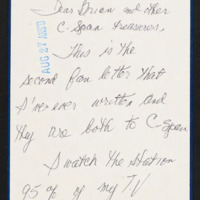 Dear Brian and other
C-Span treasures,
This is the
second fan letter that
I've ever written and
they are both to C-Span
I watch the station
95% of my TV
AUG 27 REC'D